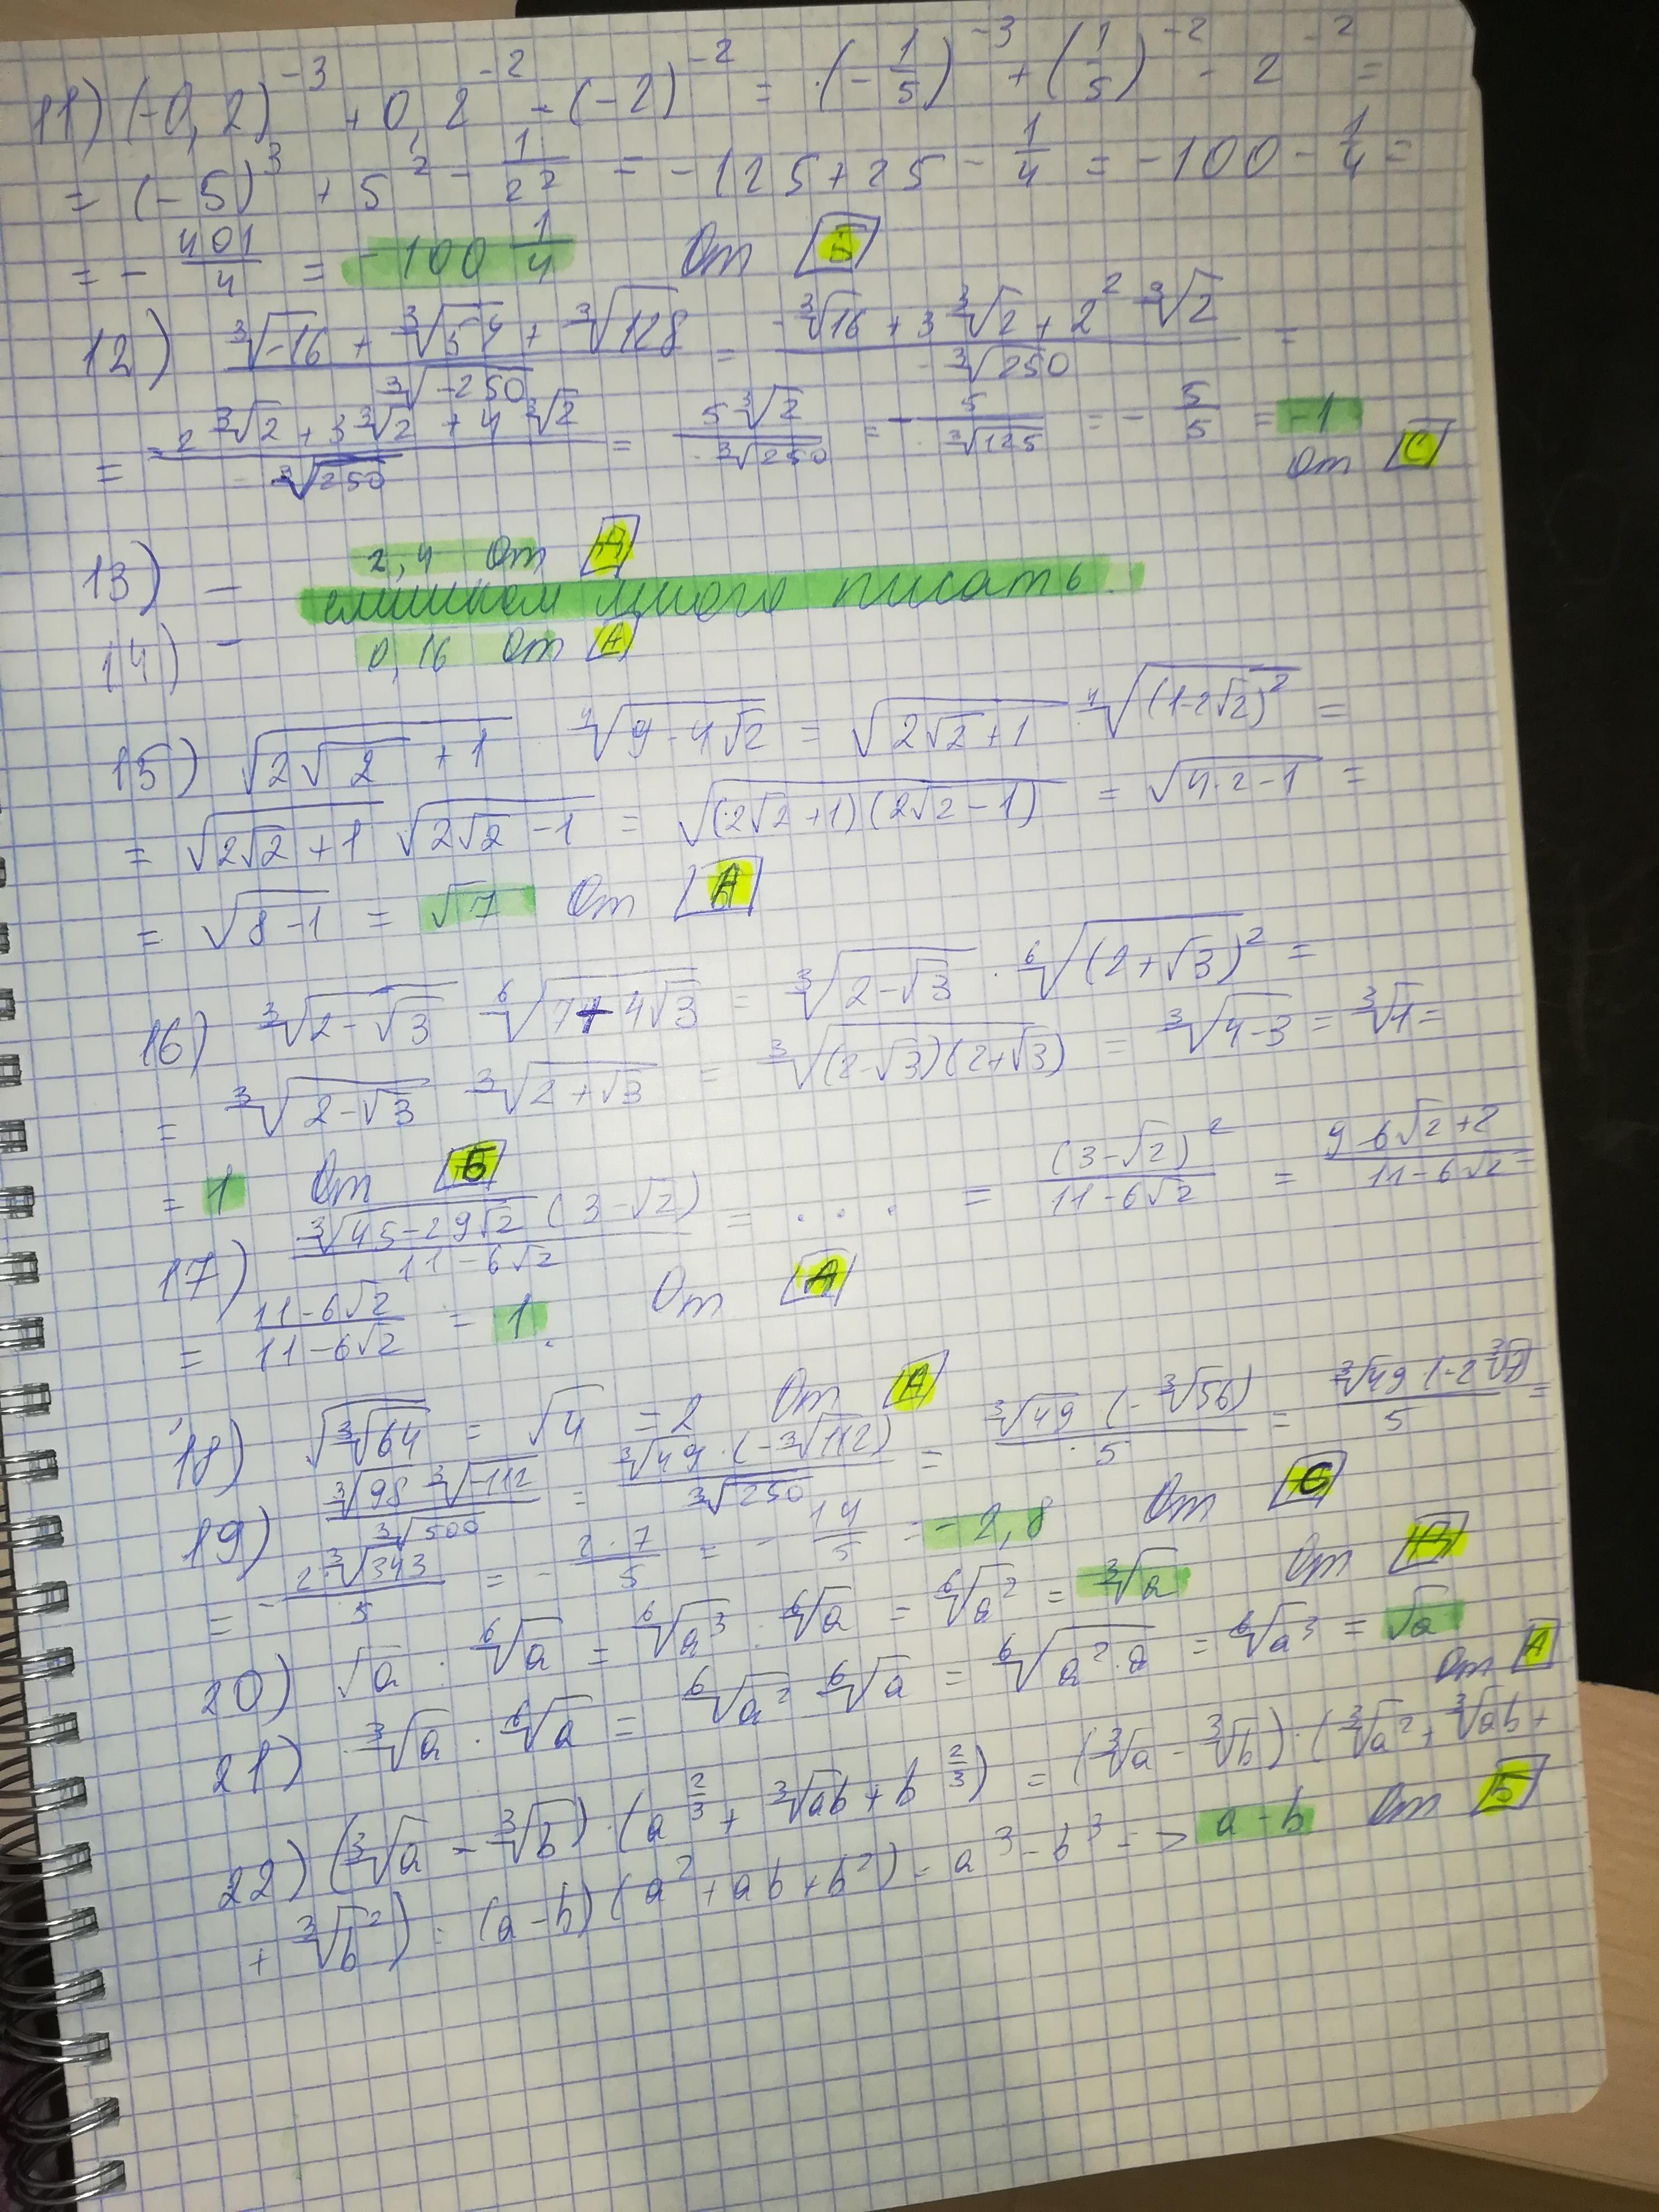 11) (-0,2)^-3 + 0,2^-2 - (-2)^-2 = (-1/5)^-3 + (1/5)^-2 - 2^-2 =
= (-5)^3 + 5^2 - 1/2^2 = -125 + 25 - 1/4 = -100 - 1/4 =
= - 401/4 = -100 1/4 От
12) (∛-16 + ∛54 + ∛128)/∛-250 = (-∛16 + 3∛2 + 2^2 ∛2)/-∛250 =
= (-2∛2 + 3∛2 + 4∛2)/-∛250 = 5∛2/-∛250 = - 5/∛125 = - 5/5 = -1
От C
13) – 2,4 От A
слишком много писать.
14) – 0,16 От A
15) √(2√2 + 1) ∜(9 - 4√2) = √(2√2 + 1) ∜((1-2√2)^2) =
= √(2√2 + 1) √(2√2 - 1) = √((2√2 + 1)(2√2 - 1)) = √(4·2 - 1) =
= √(8 - 1) = √7 От A
16) ∛(2 - √3) ⁶√(7 + 4√3) = ∛(2 - √3) · ⁶√((2 + √3)^2) =
= ∛(2 - √3) ∛(2 + √3) = ∛((2 - √3)(2 + √3)) = ∛(4 - 3) = ∛1 =
= 1 От Б
17) ∛(45 - 29√2) (3 - √2)/(11 - 6√2) = ... = (3 - √2)^2/(11 - 6√2) = (9 - 6√2 + 2)/(11 - 6√2) =
= (11 - 6√2)/(11 - 6√2) = 1. От A
18) √∛64 = √4 = 2 От A
19) ∛98 ∛-112/∛500 = ∛49 · (-∛112)/∛250 = ∛49 (-∛56)/5 = ∛49 (-2∛7)/5 =
= - 2∛343/5 = - 2·7/5 = - 14/5 = -2,8 От C
20) √a : ⁶√a = ⁶√a^3 : ⁶√a = ⁶√a^2 = ∛a От
21) ∛a · ⁶√a = ⁶√a^2 ⁶√a = ⁶√(a^2·a) = ⁶√a^3 = √a
От A
22) (∛a - ∛b) · (a^(2/3) + ∛ab + b^(2/3)) = (∛a - ∛b) · (∛a^2 + ∛ab +
+ ∛b^2) = (a - b)(a^2 + ab + b^2) = a^3 - b^3 => a - b От Б